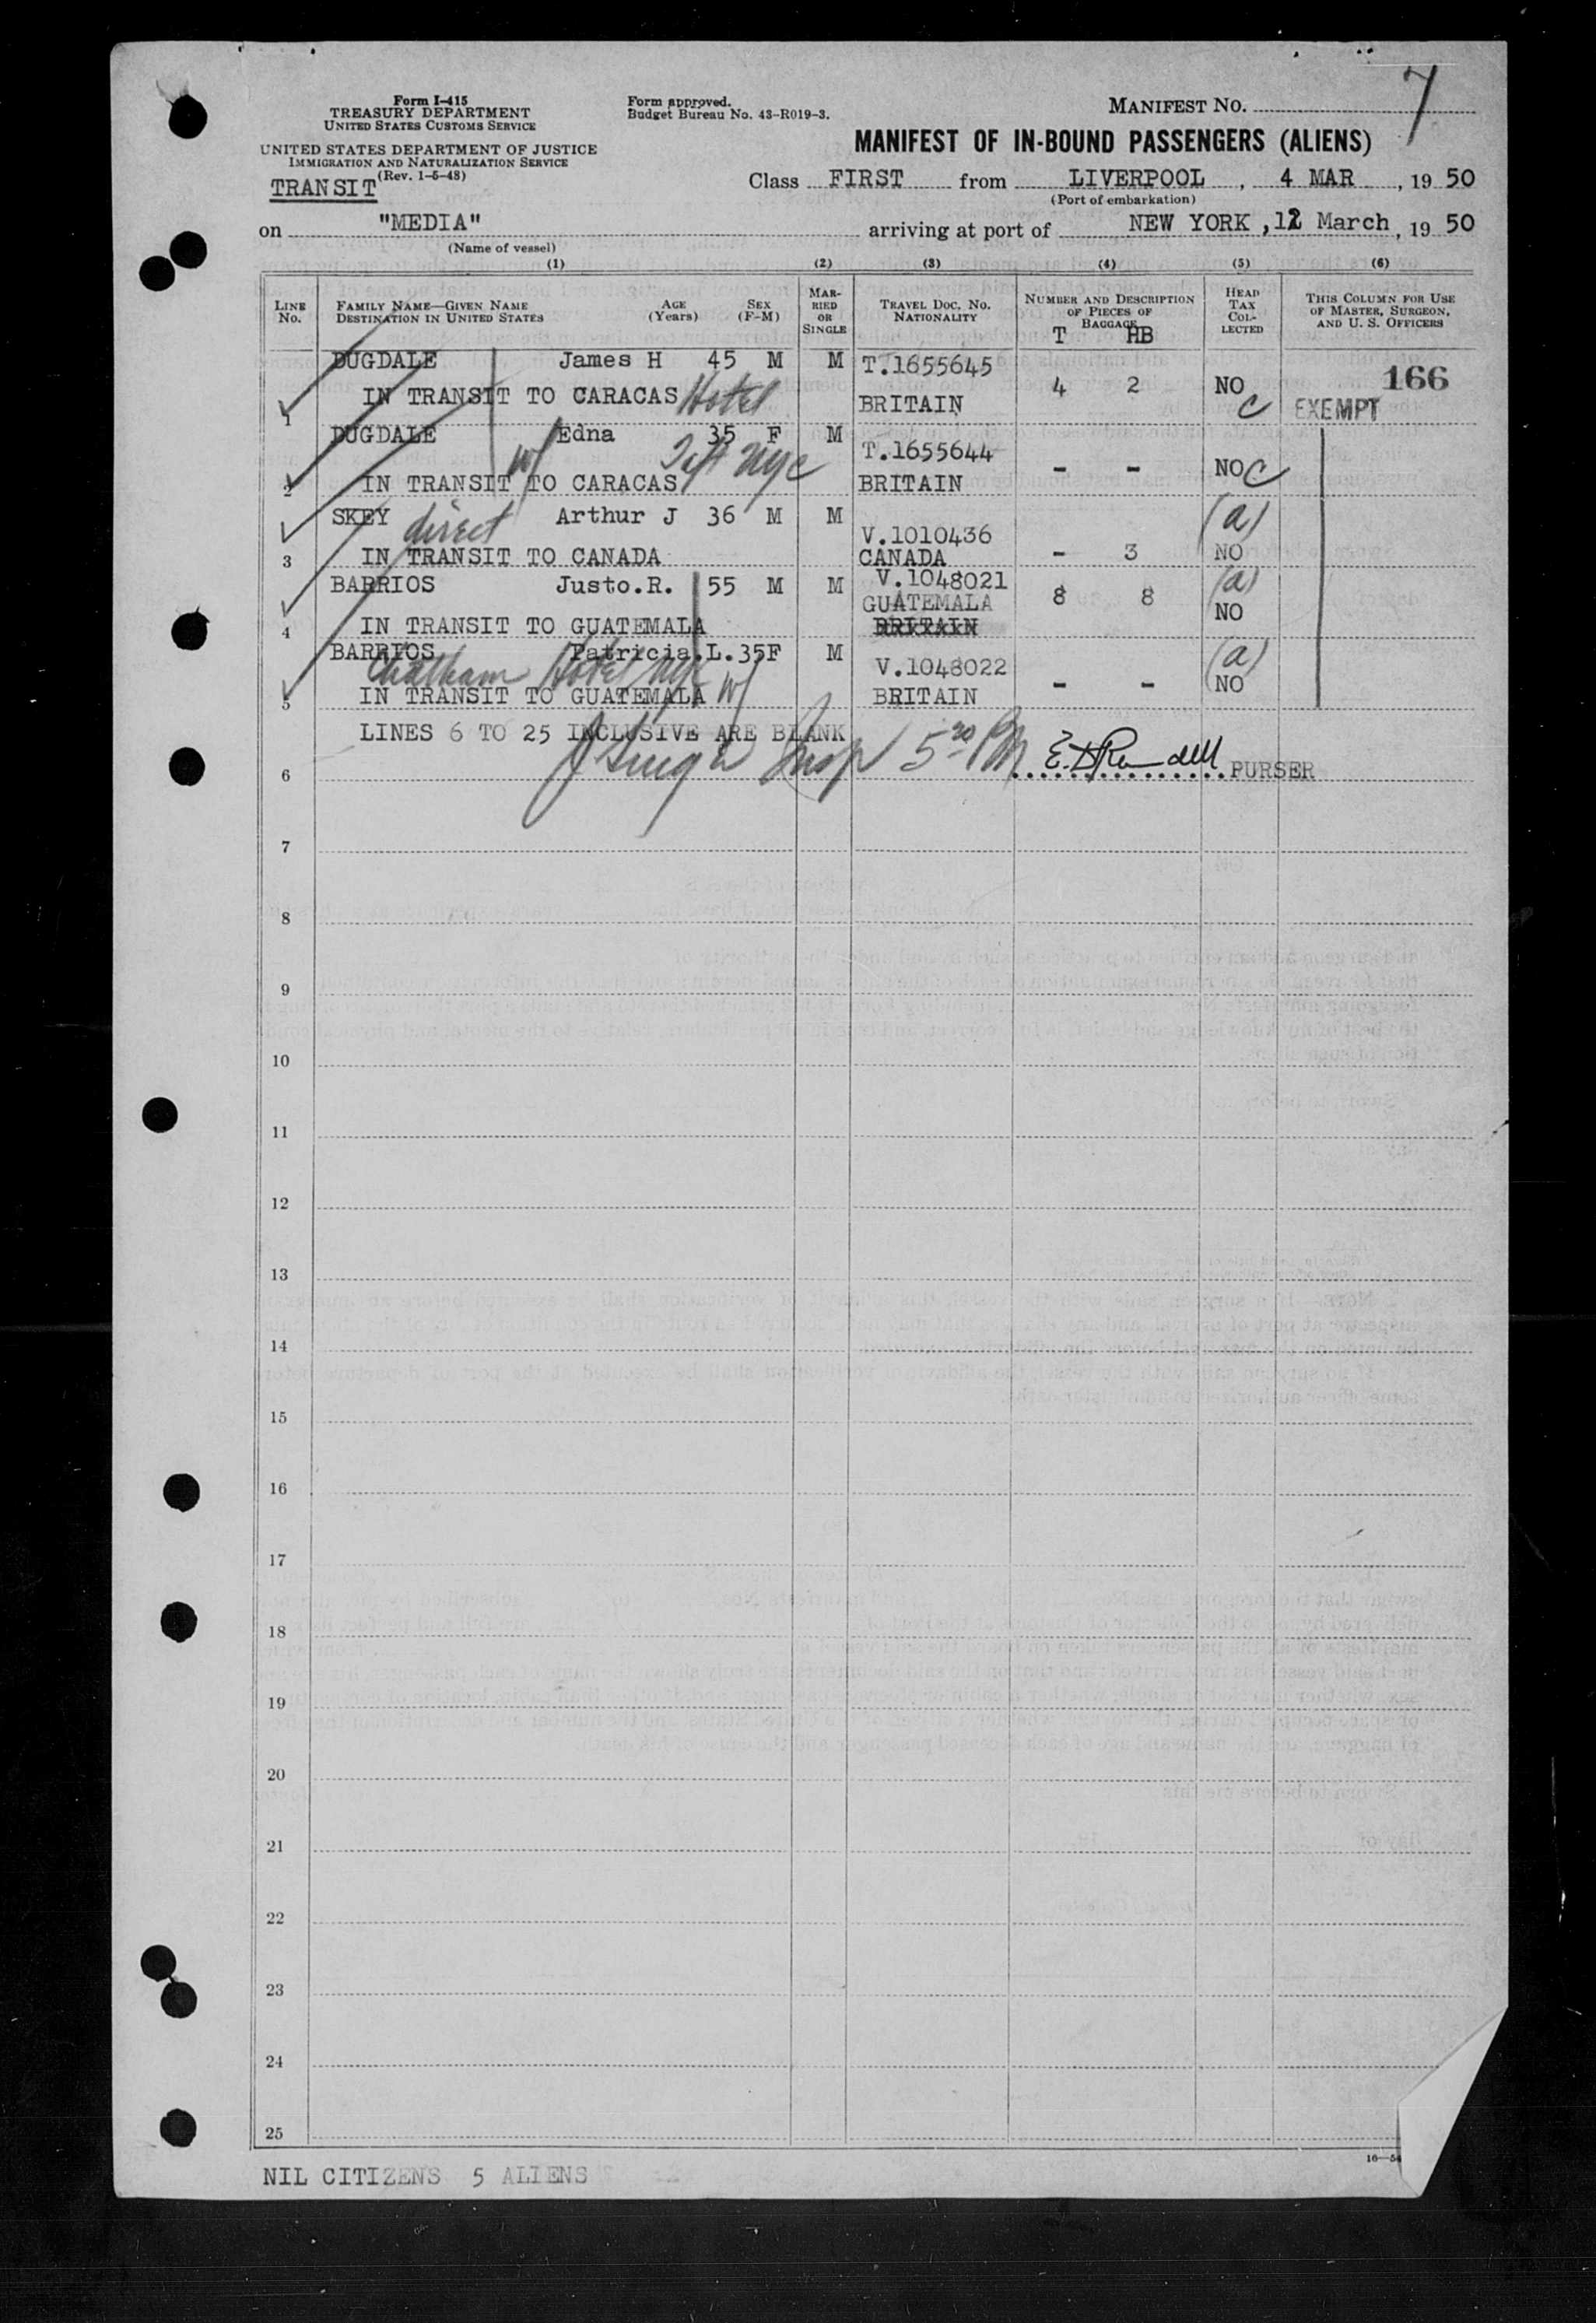 Form I-415
TREASURY DEPARTMENT
UNITED STATES CUSTOMS SERVICE
UNITED STATES DEPARTMENT OF JUSTICE
IMMIGRATION AND NATURALIZATION SERVICE
(Rev. 1-5-48)
TRANSIT
Form approved.
Budget Bureau No. 43-R019-3.
MANIFEST NO. 7
MANIFEST OF IN-BOUND PASSENGERS (ALIENS)
Class FIRST from LIVERPOOL, 4 MAR, 19 50
(Port of embarkation)
on "MEDIA" arriving at port of NEW YORK, 12 March, 19 50
(Name of vessel)
(1) (2) (3) (4) (5) (6)
LINE NO. FAMILY NAME—GIVEN NAME DESTINATION IN UNITED STATES AGE (Years) SEX (F-M) MARRIED OR SINGLE TRAVEL DOC. NO. NATIONALITY NUMBER AND DESCRIPTION OF PIECES OF BAGGAGE HEAD TAX COLLECTED THIS COLUMN FOR USE OF MASTER, SURGEON, AND U. S. OFFICERS
T HB
DUGDALE James H 45 M M T.1655645 166
1 IN TRANSIT TO CARACAS Hotel BRITAIN 4 2 NO C EXEMPT
DUGDALE Edna 35 F M T.1655644
Taft NYC
2 IN TRANSIT TO CARACAS BRITAIN - - NO C
w/
SKEY Arthur J 36 M M V.1010436 (a)
direct
3 IN TRANSIT TO CANADA CANADA - 3 NO
BARRIOS Justo.R. 55 M M V.1048021 (a)
GUATEMALA 8 8 NO
4 IN TRANSIT TO GUATEMALA BRITAIN
BARRIOS Patricia.L. 35 F M V.1048022 (a)
Chatham Hotel NYC
5 IN TRANSIT TO GUATEMALA w/ BRITAIN - - NO
LINES 6 TO 25 INCLUSIVE ARE BLANK
6 Insp 5 30 PM PURSER
7
8
9
10
11
12
13
14
15
16
17
18
19
20
21
22
23
24
25
16—54
NIL CITIZENS 5 ALIENS